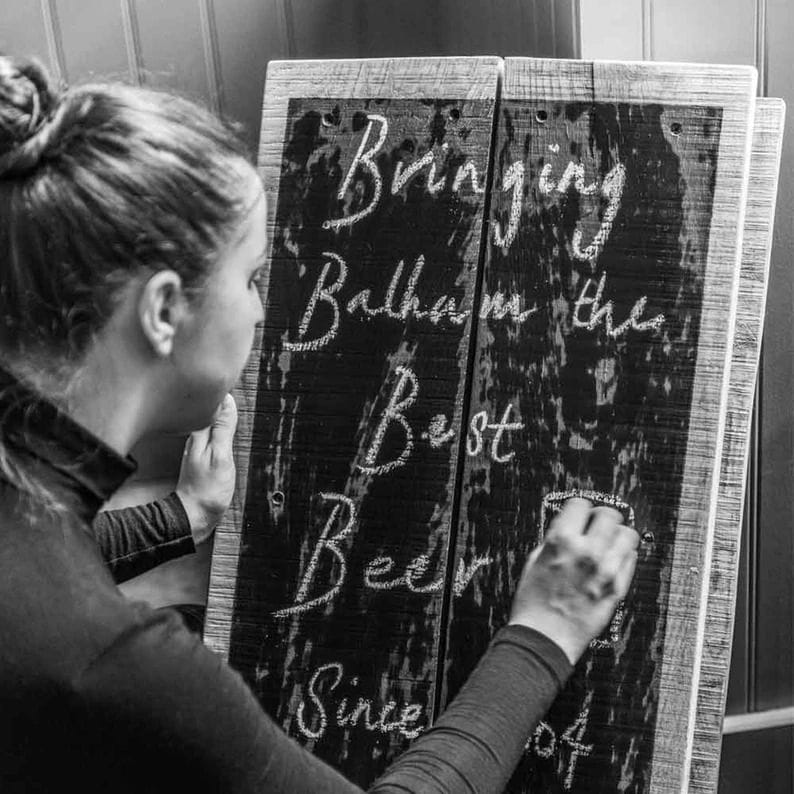 Bringing
Balham the
Best
Beer
Since 04